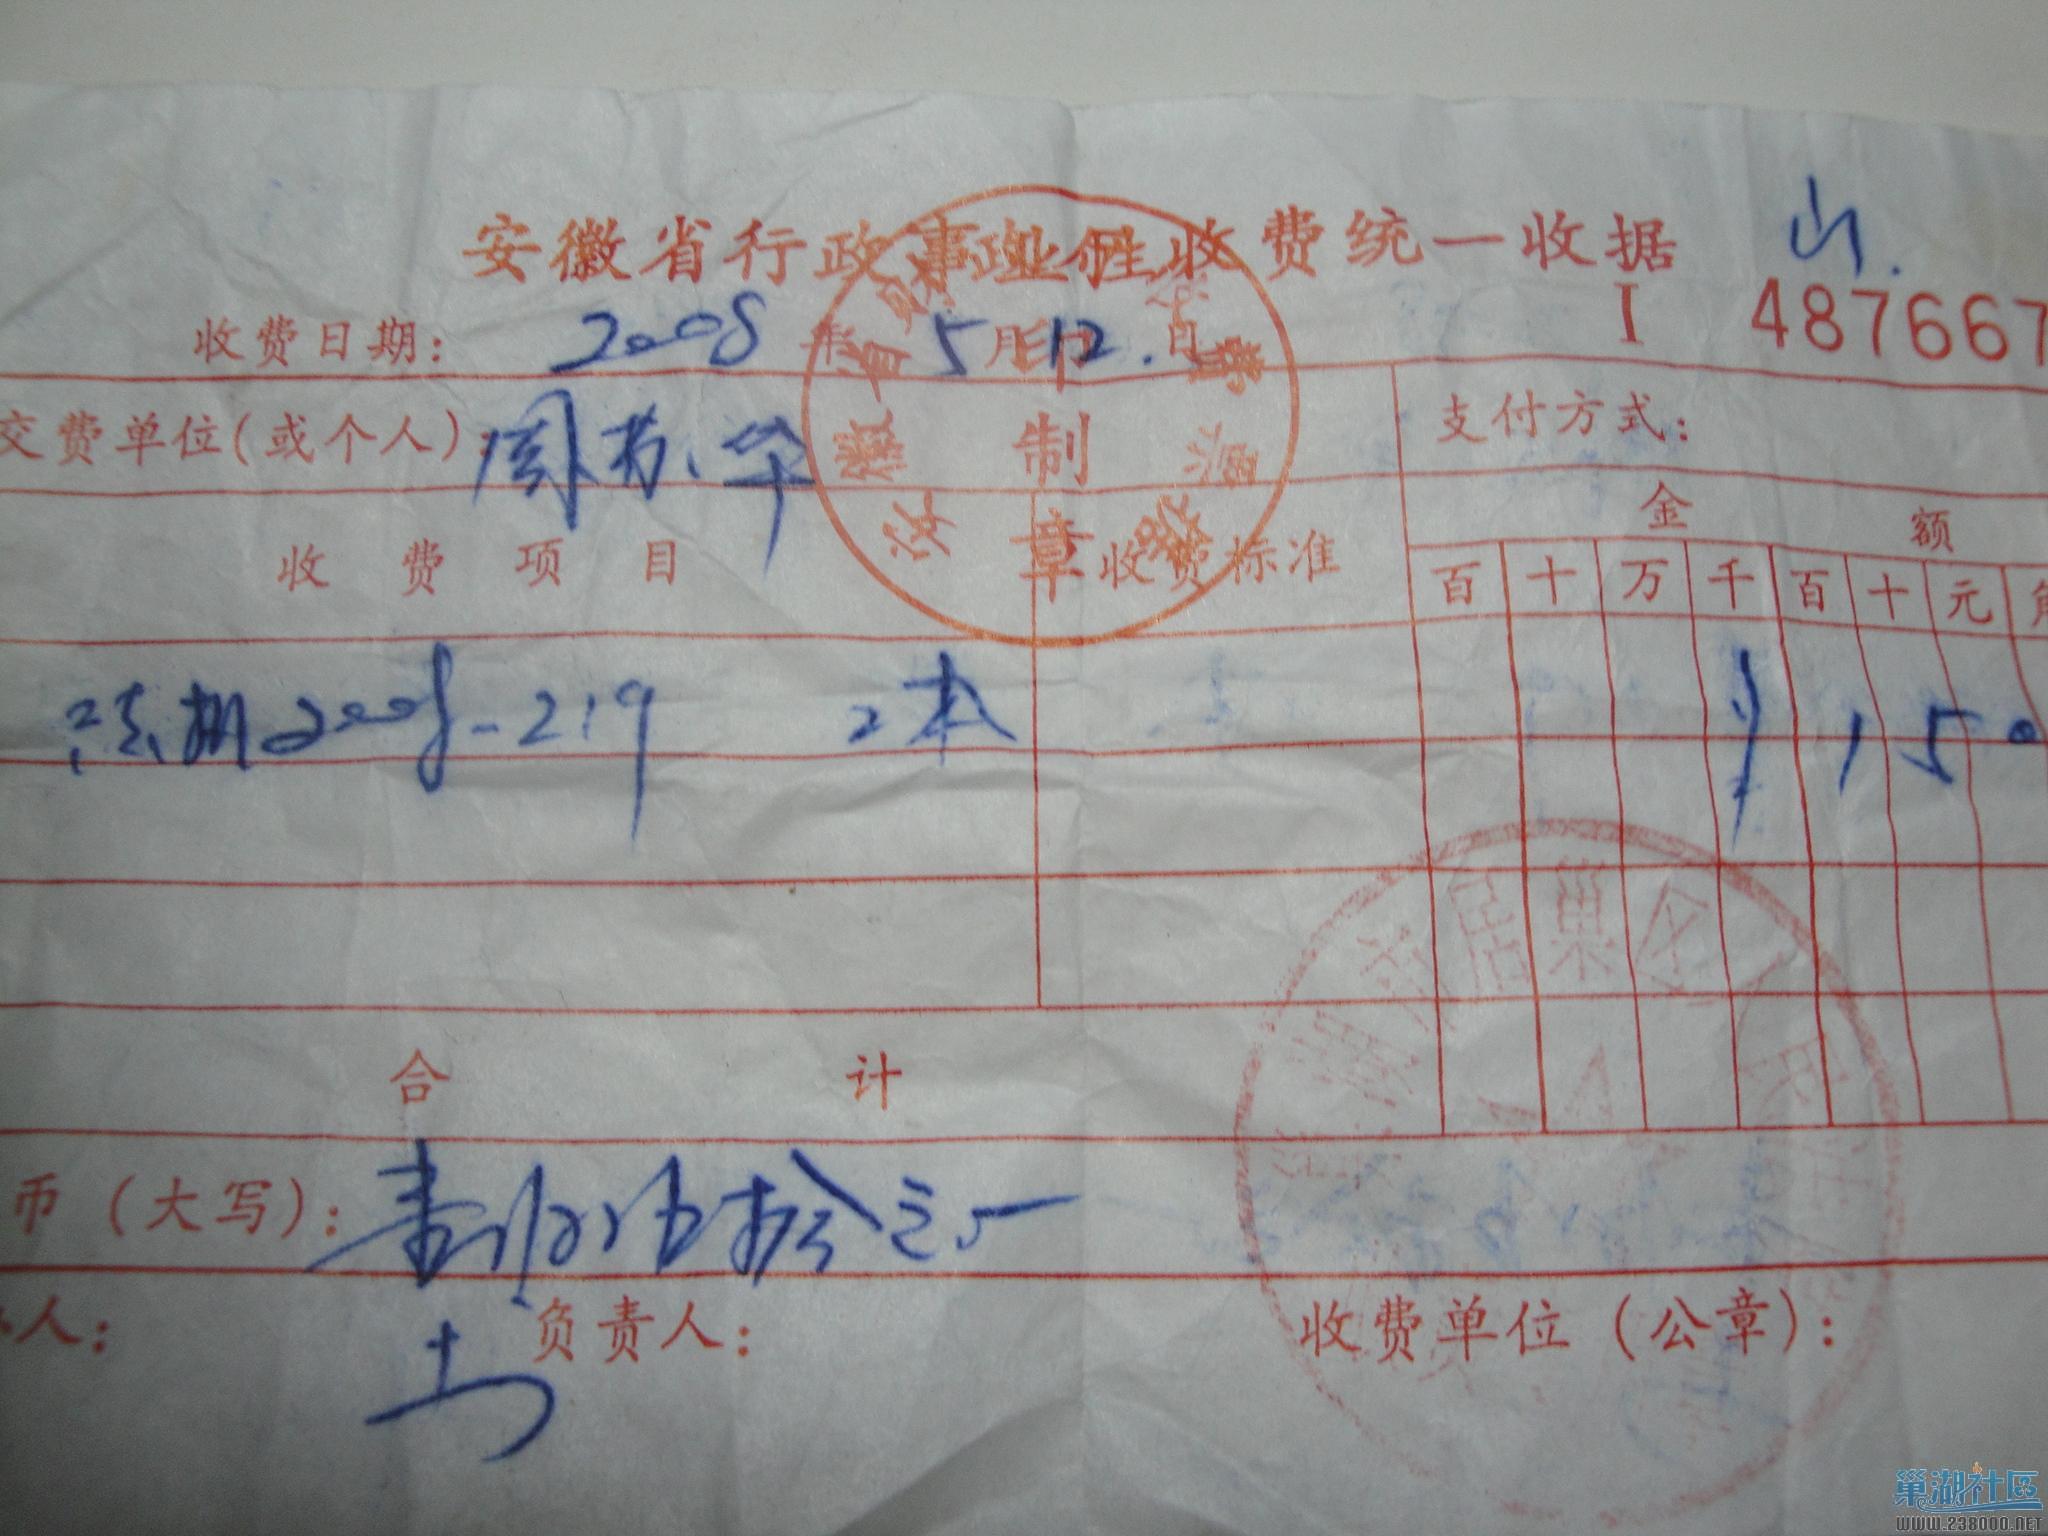 安徽省行政事业性收费统一收据
I 487667
收费日期: 2008 年 5 月 12 日
交费单位(或个人):
支付方式:
收费项目
收费标准
金额
百 十 万 千 百 十 元 角
2008-219 2本 ¥150
合计
币(大写): 壹佰伍拾元
人:
负责人:
收费单位(公章):
制
章
巢湖社区
WWW.238000.NET